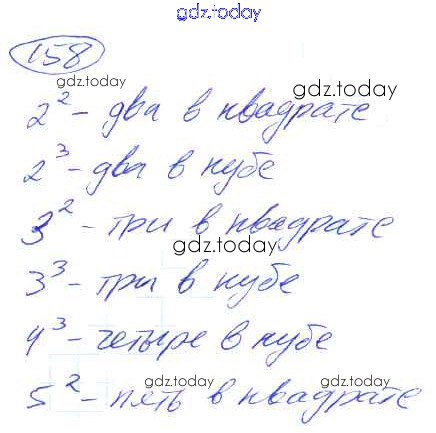 gdz.today
158
gdz.today
gdz.today
2² - два в квадрате
2³ - два в кубе
3² - три в квадрате
gdz.today
gdz.today
3³ - три в кубе
4³ - четыре в кубе
gdz.today
gdz.today
5² - пять в квадрате